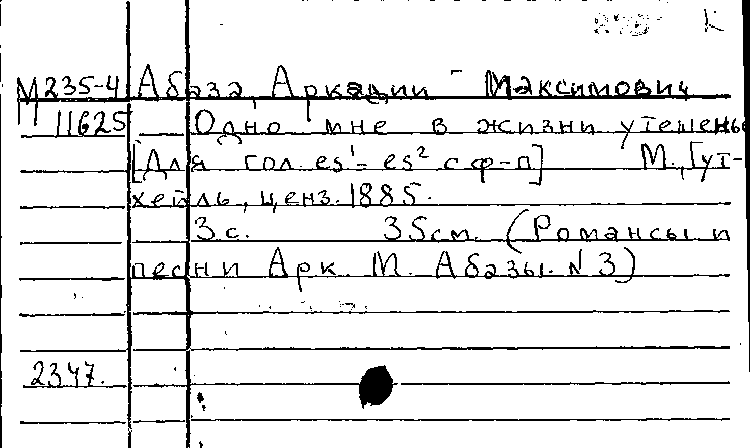 К
М235-4 Абаза, Аркадии Максимович
11625 Одно мне в жизни утешенье
[Для гол. es¹- es² с ф-п] М., [ут-
хейль, ценз. 1885.
3 с. 35см. (Романсы и
песни Арк. М. Абазы. N 3)
2347.